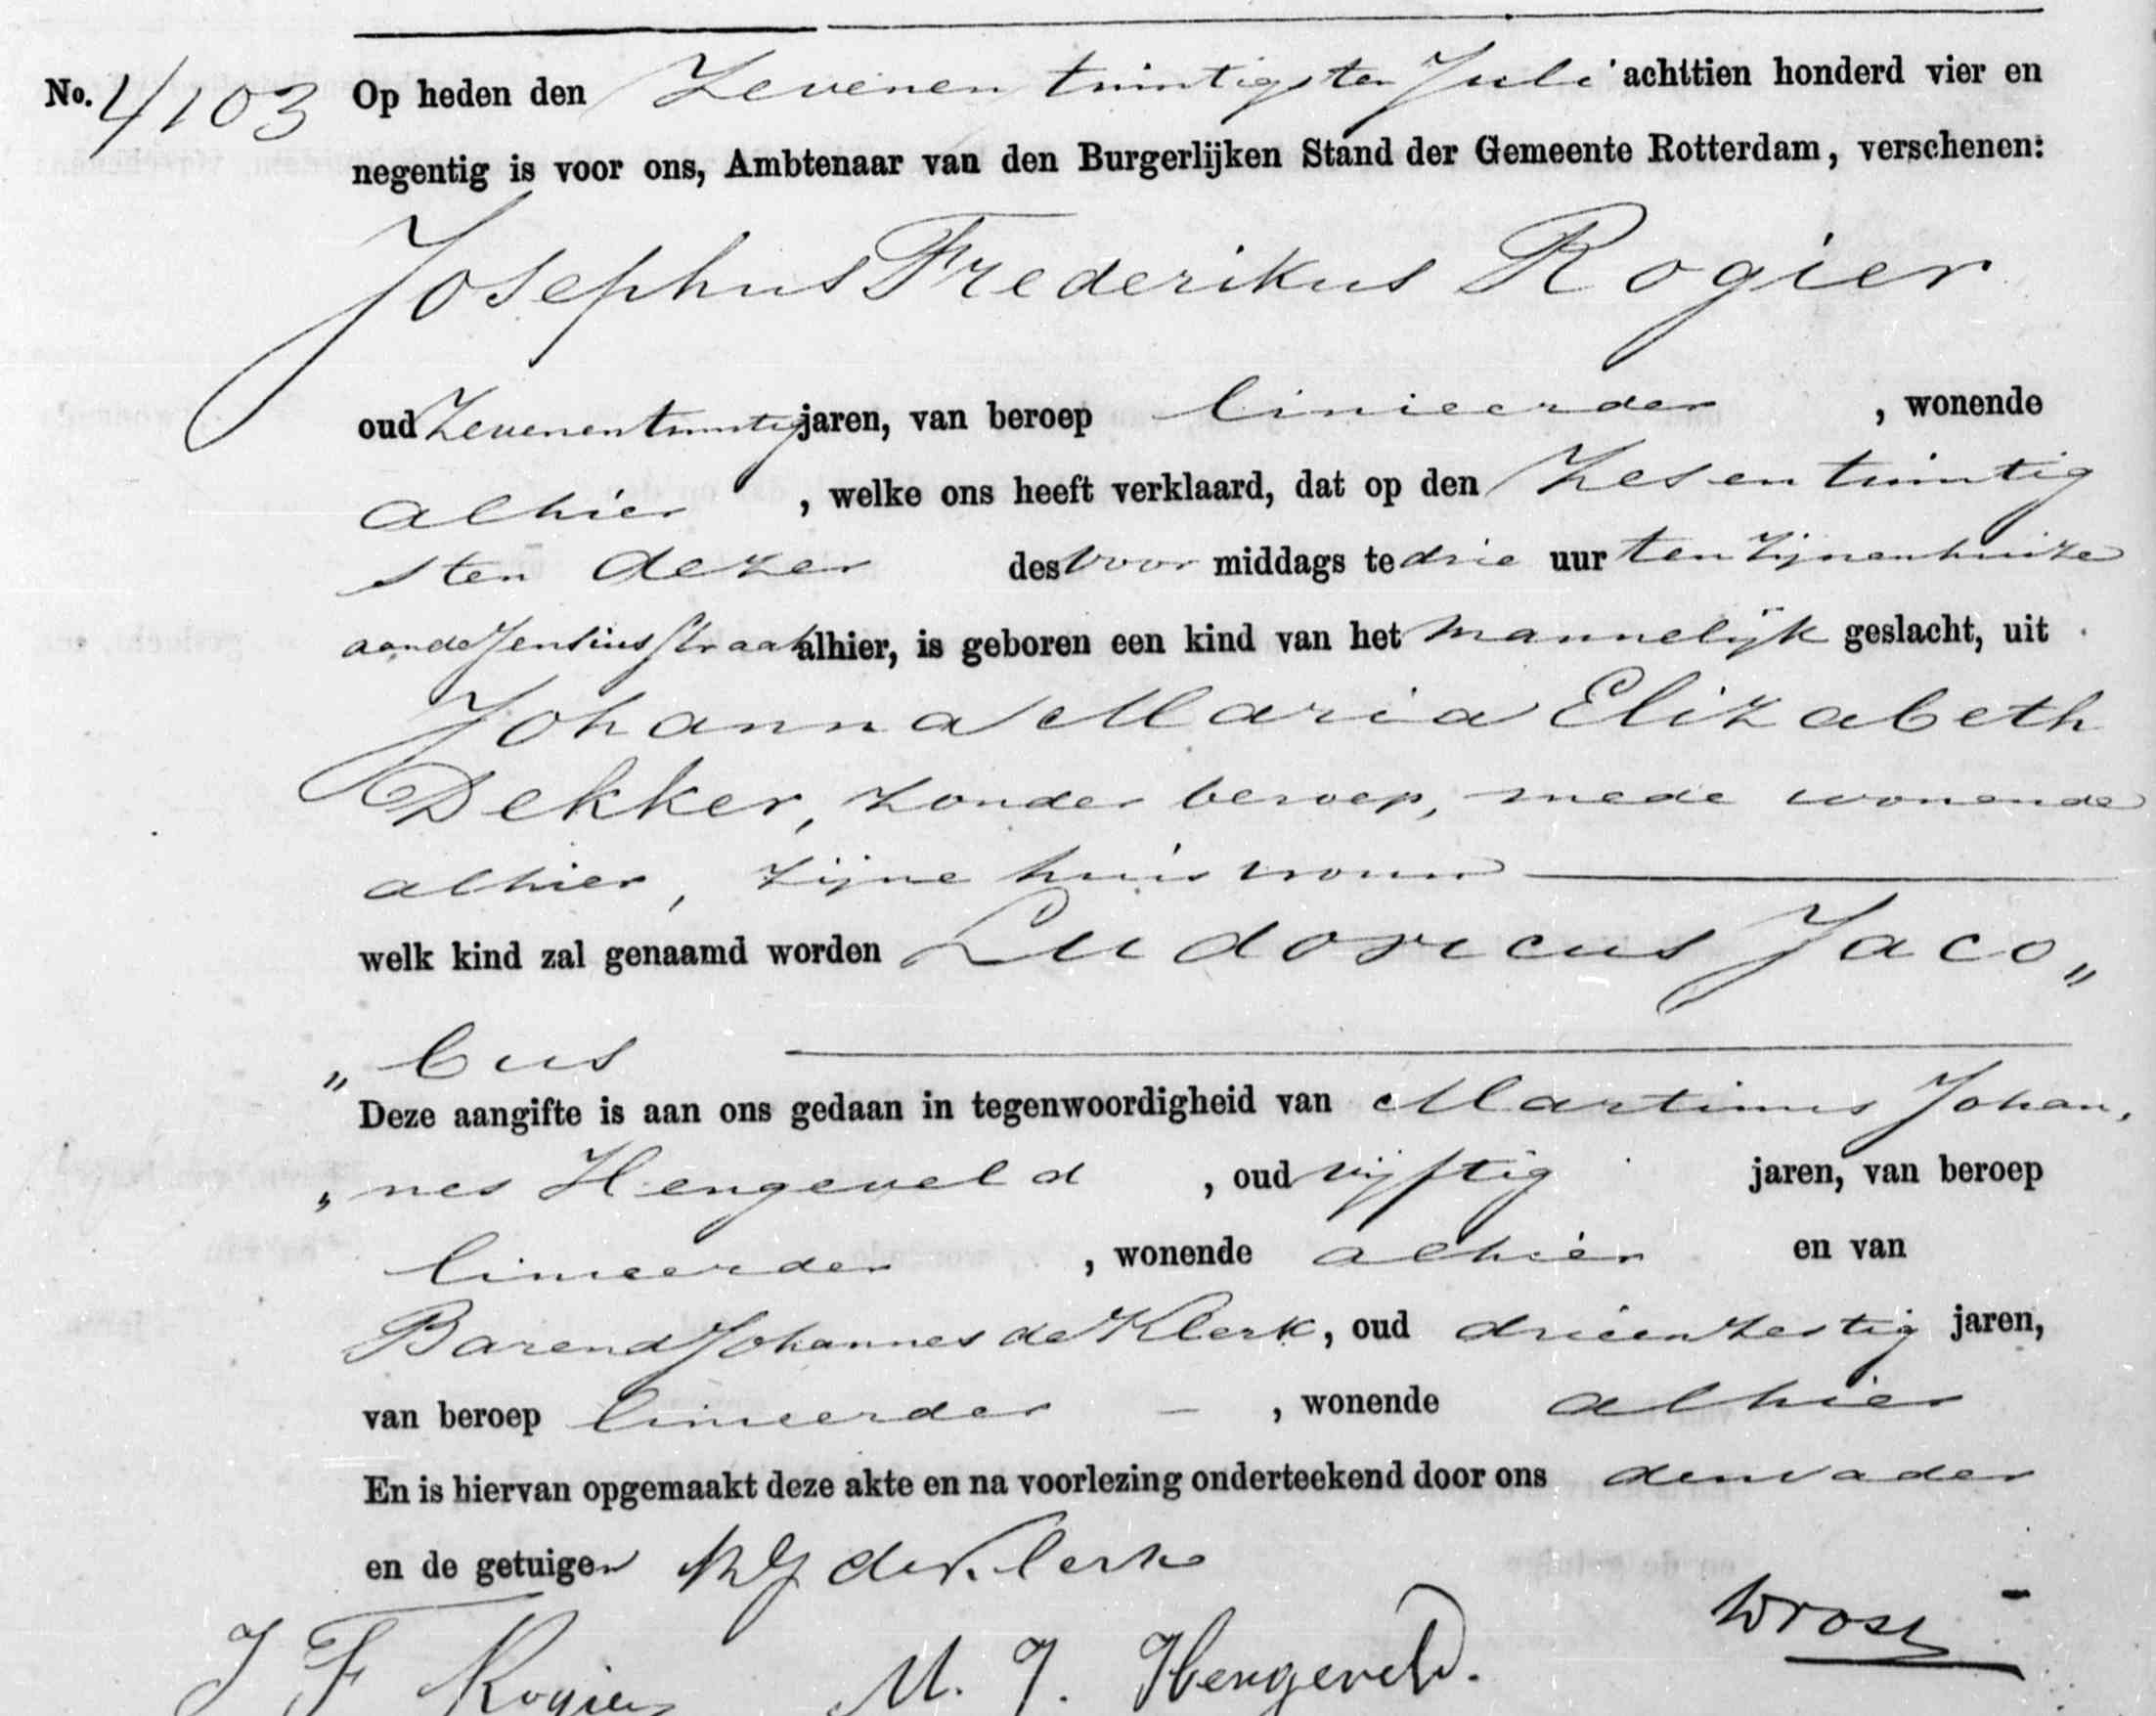 No. 4103 Op heden den Zevenen twintigsten Juli achttien honderd vier en
negentig is voor ons, Ambtenaar van den Burgerlijken Stand der Gemeente Rotterdam, verschenen:
Josephus Frederikus Rogier
oud Zevenentwintig jaren, van beroep linieerder, wonende
alhier, welke ons heeft verklaard, dat op den Zesentwintig
sten dezer des voor middags te drie uur ten zijnen huize
aan de Jensiusstraat alhier, is geboren een kind van het mannelijk geslacht, uit
Johanna Maria Elizabeth
Dekker, zonder beroep, mede wonende
alhier, zijne huisvrouw
welk kind zal genaamd worden Ludovicus Jaco„
„bus
Deze aangifte is aan ons gedaan in tegenwoordigheid van Martinus Johan„
„nes Hengeveld, oud vijftig jaren, van beroep
linieerder, wonende alhier en van
Barend Johannes de Klerk, oud drieenzestig jaren,
van beroep linieerder, wonende alhier
En is hiervan opgemaakt deze akte en na voorlezing onderteekend door ons den vader
en de getuigen BJ de Klerk
J F Rogier M. J. Hengeveld.